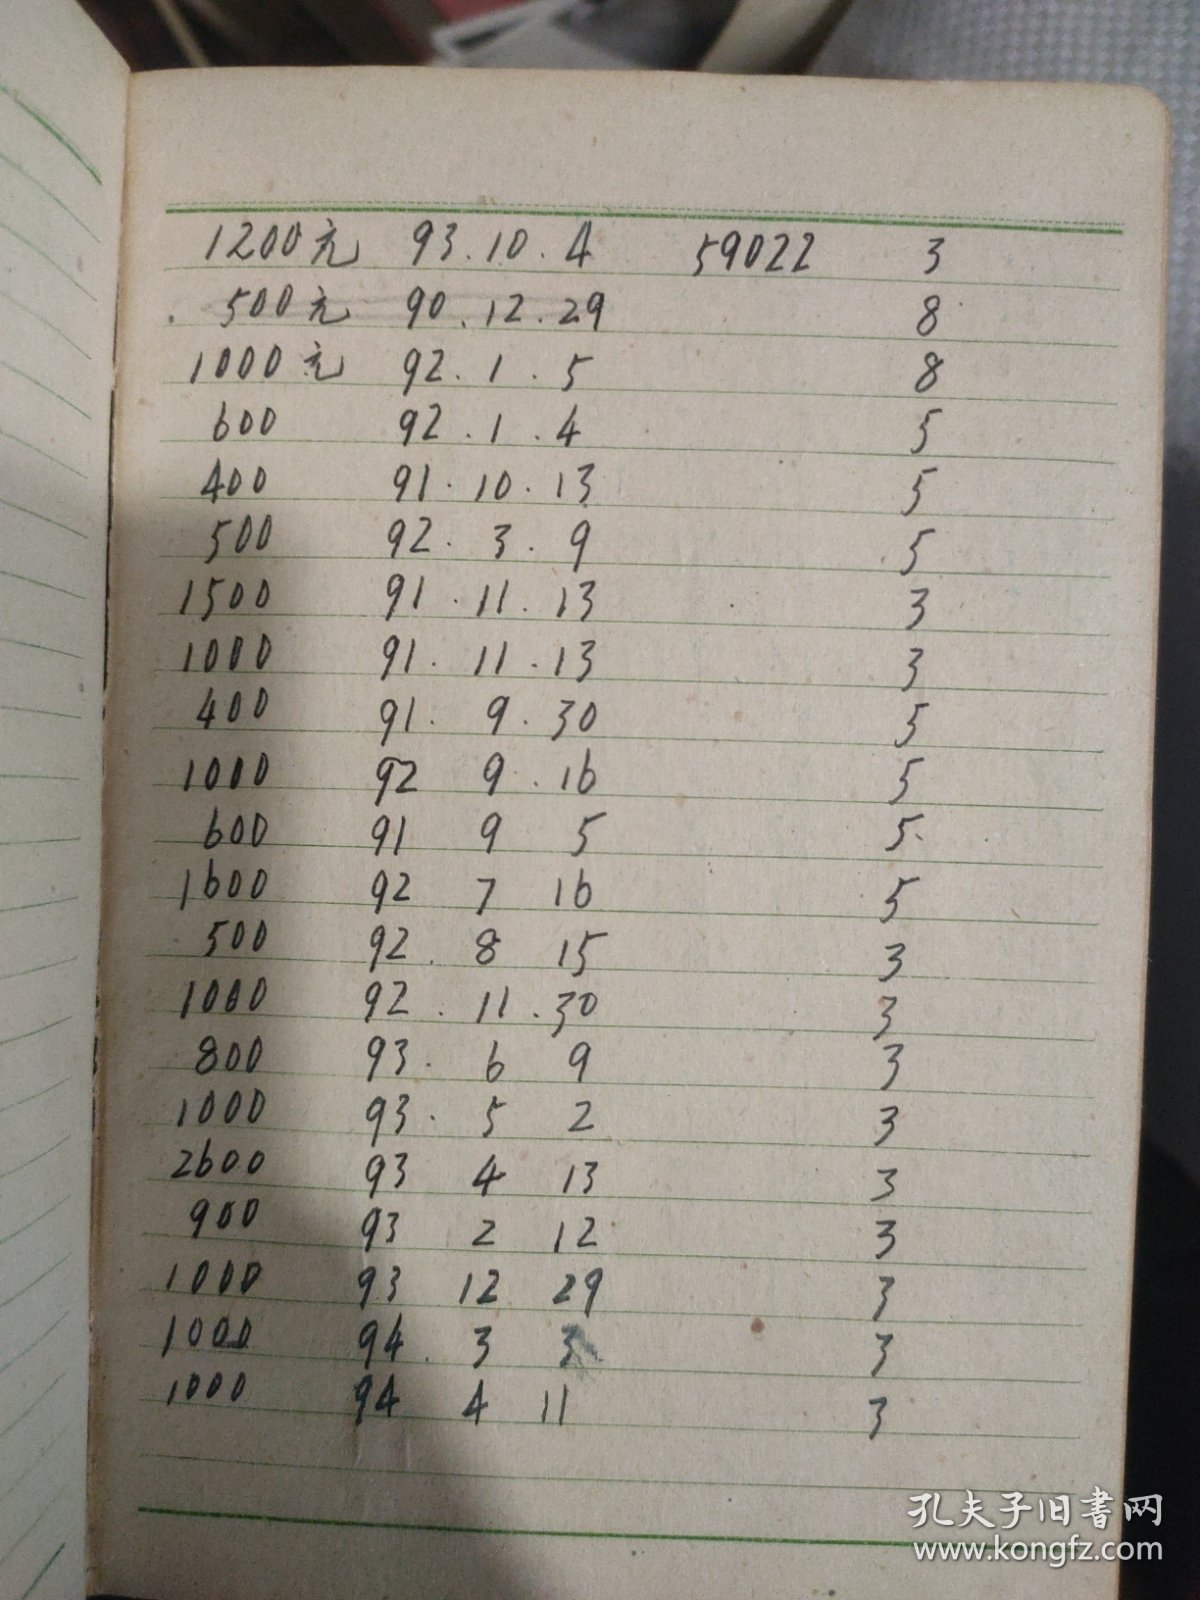 1200元 93.10.4 59022 3
500元 90.12.29 8
1000元 92.1.5 8
600 92.1.4 5
400 91.10.13 5
500 92.3.9 5
1500 91.11.13 3
1000 91.11.13 3
400 91.9.30 5
1000 92 9.16 5
600 91 9 5 5
1600 92 7 16 5
500 92.8 15 3
1000 92.11.30 3
800 93.6 9 3
1000 93.5 2 3
2600 93 4 13 3
900 93 2 12 3
1000 93 12 29 3
1000 94.3 3 3
1000 94 4 11 3
孔夫子旧書网
www.kongfz.com